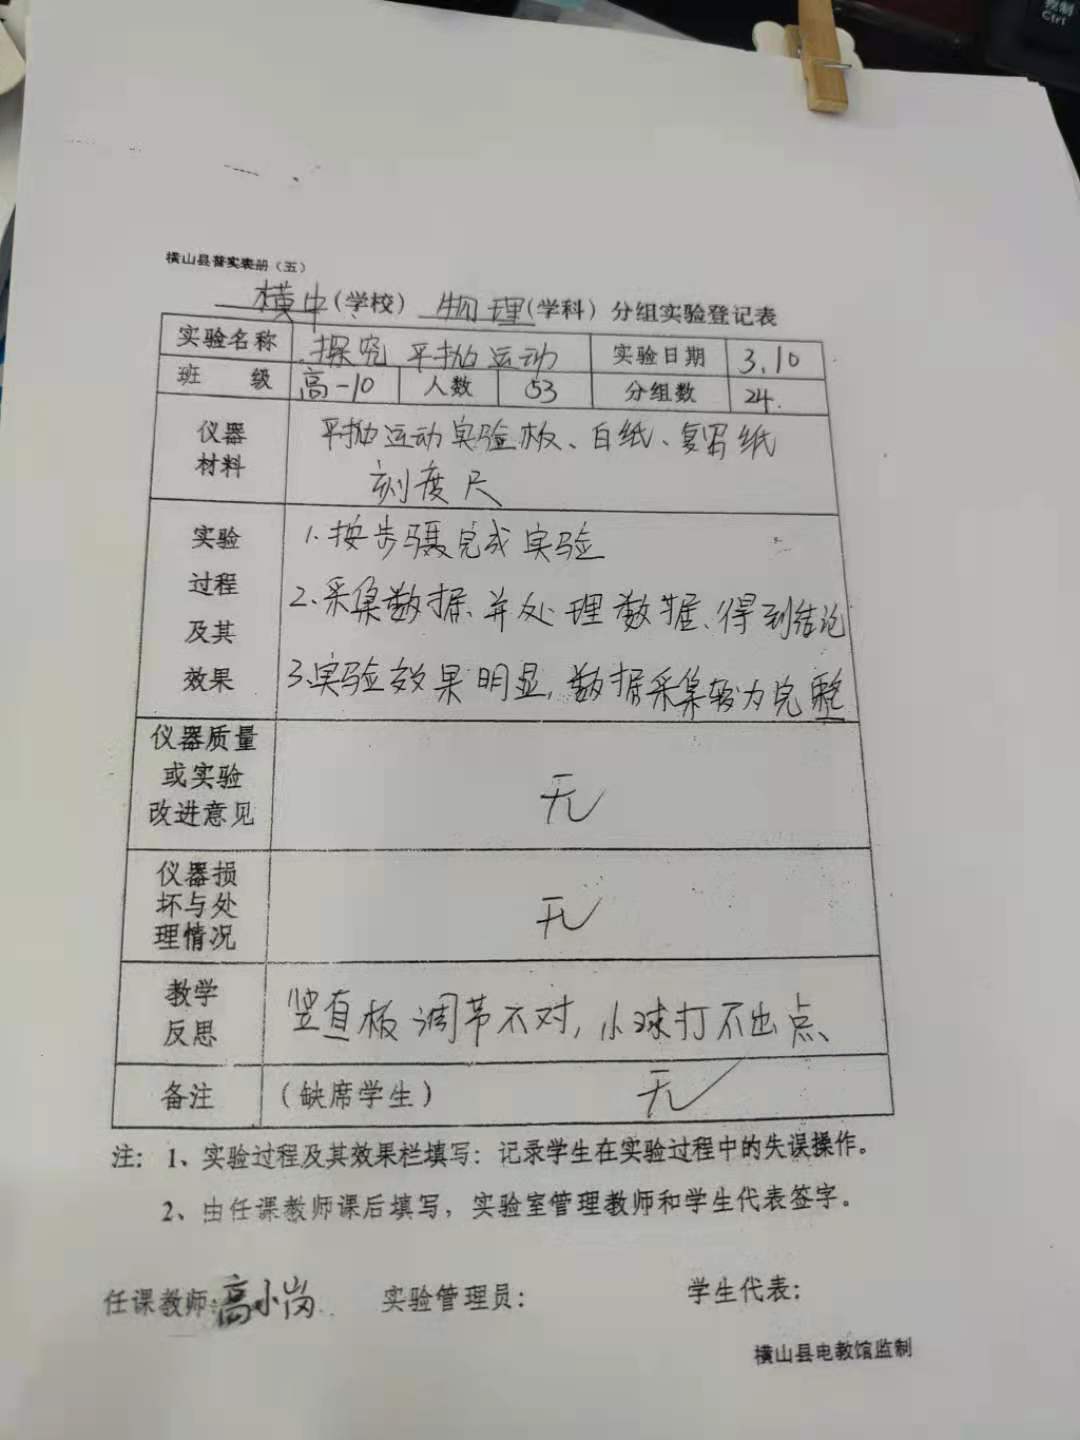 控制
Ctrl
横山县普实表册（五）
横中(学校) 物理(学科) 分组实验登记表
实验名称 探究平抛运动 实验日期 3.10
班 级 高一10 人数 53 分组数 24.
仪器 平抛运动实验板、白纸、复写纸
材料 刻度尺
实验 1.按步骤完成实验
过程 2、采集数据、并处理数据、得到结论
及其
效果 3、实验效果明显，数据采集较为完整
仪器质量
或实验 无
改进意见
仪器损
坏与处 无
理情况
教学 竖直板调节不对，小球打不出点、
反思
备注 (缺席学生) 无
注: 1、实验过程及其效果栏填写: 记录学生在实验过程中的失误操作。
2、由任课教师课后填写，实验室管理教师和学生代表签字。
任课教师: 高小岗 实验管理员: 学生代表:
横山县电教馆监制